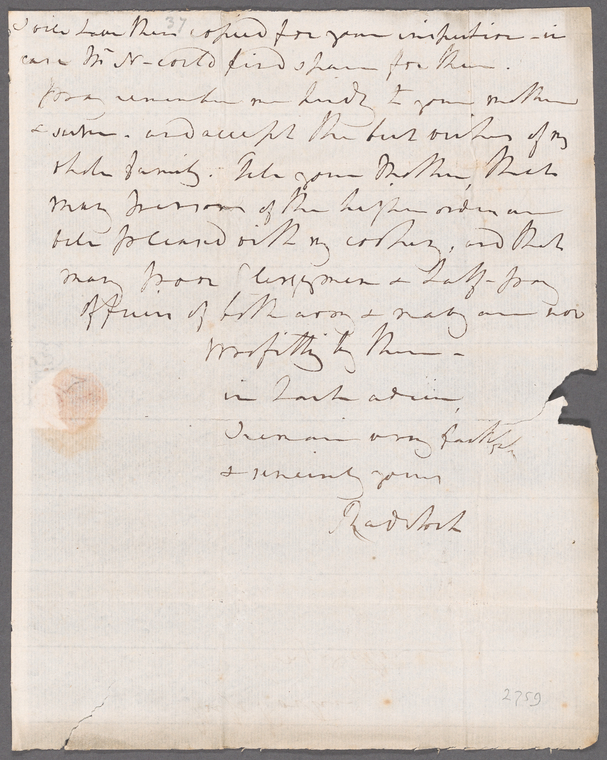 37
I will have them copied for your inspection – in
case Mr N– could find space for them.
Pray remember me kindly to your mother
& sister – and accept the best wishes of my
whole family. Tell your Mother, that
many persons of the higher orders are
well pleased with my cookery, and that
many poor Clergymen & half-pay
Officers of both army & navy are now
profitting by them –
in haste adieu,
I remain very faithfully
& sincerely yours
Radstock
2759